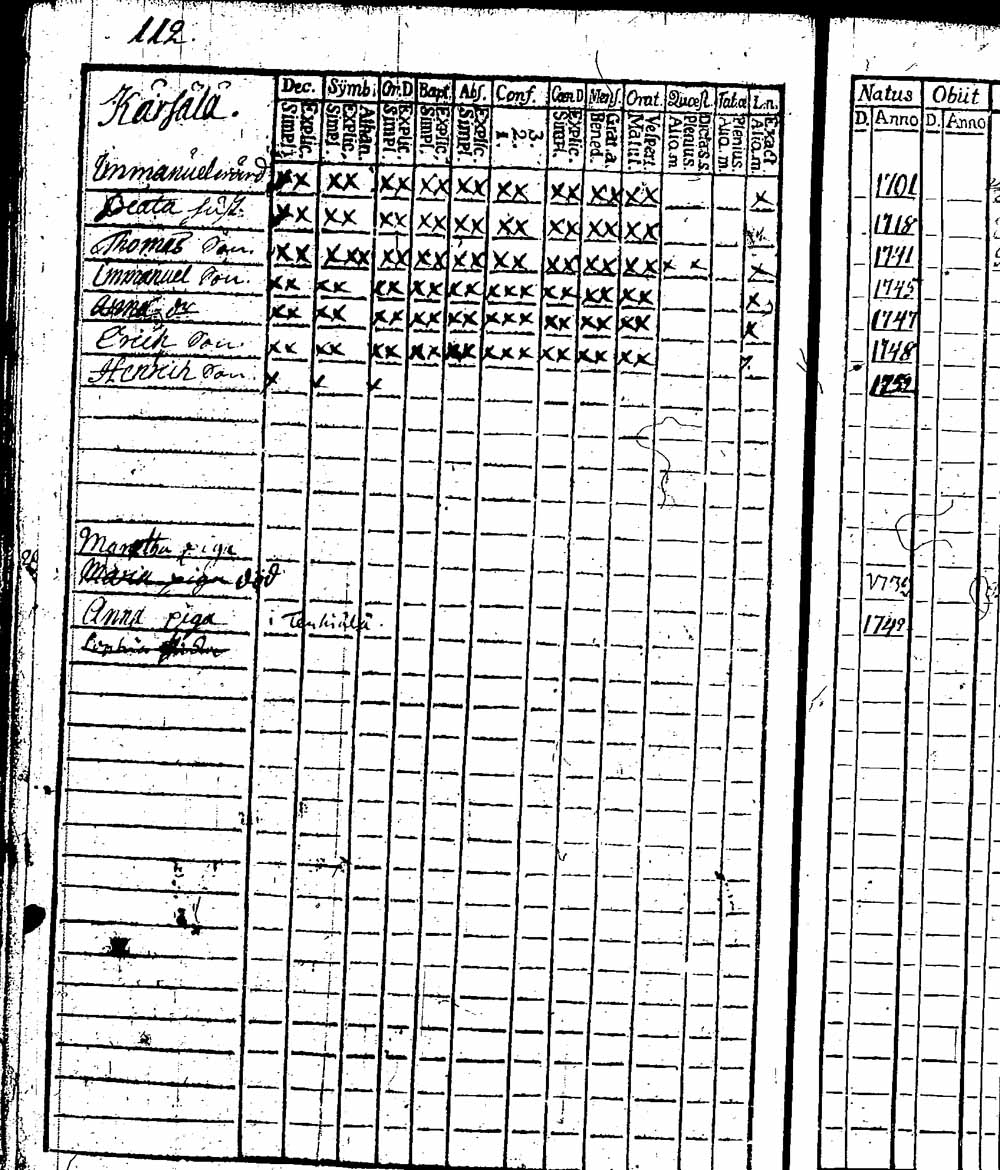 112.
Kärsälä.
Dec. Symb. Or.D Bapt. Abs. Conf. Cœn.D Mens. Orat. Quæst. Tab.œ L.n.
Simpl. Explic. Simpl. Explic. Athan. Simpl. Explic. Simpl. Explic. Simpl. Explic. 1. 2. 3. Simpl. Explic. Bened. Grat.a. Matut. Vespert. Aliq.m Plenius. Dicta s.s. Aliq.m Plenius. Aliq.m Exact
Natus Obiit
D. Anno D. Anno
Immanuel wärd xx xx xx xx xx xx xx xx xx x 1701
Beata hust. xx xx xx xx xx xx xx xx xx 1718
Thomas Son. xx xxx xx xx xx xx xx xx xx x x x 1741
Immanuel Son. xx xx xx xx xx xxx xx xx xx x 1745
Anna dr xx xx xx xx xx xxx xx xx xx x 1747
Erich Son. xx xx xx xx xx xxx xx xx xx x 1748
Henrich Son. x x x 1759
Maretha piga
Maria piga död
Anna piga i 1749